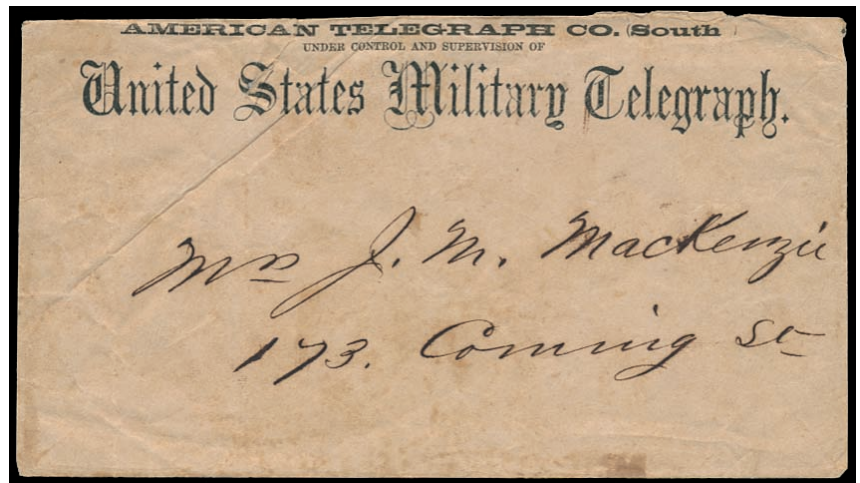 AMERICAN TELEGRAPH CO. (South
UNDER CONTROL AND SUPERVISION OF
United States Military Telegraph.
Mrs J. M. MacKenzie
173. Coming St